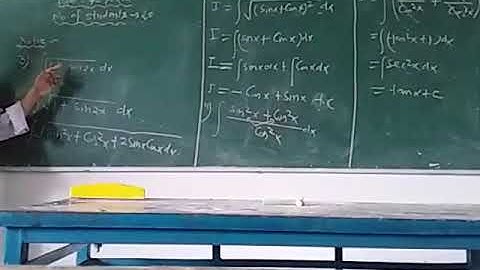 No. of students → 20
3) ∫√1+sin2x dx
√1 + sin2x dx
√sin²x + Cos²x + 2SinxCosx dx
I = ∫√(sinx+Cosx)² dx
I = ∫(sinx + Cosx)dx
I = ∫sinxdx + ∫Cosxdx
I = -Cosx + sinx + c
∫ Sin²x + Cos²x / Cos²x dx
= ∫(tan²x + 1)dx
= ∫Sec²x dx
= tanx + c